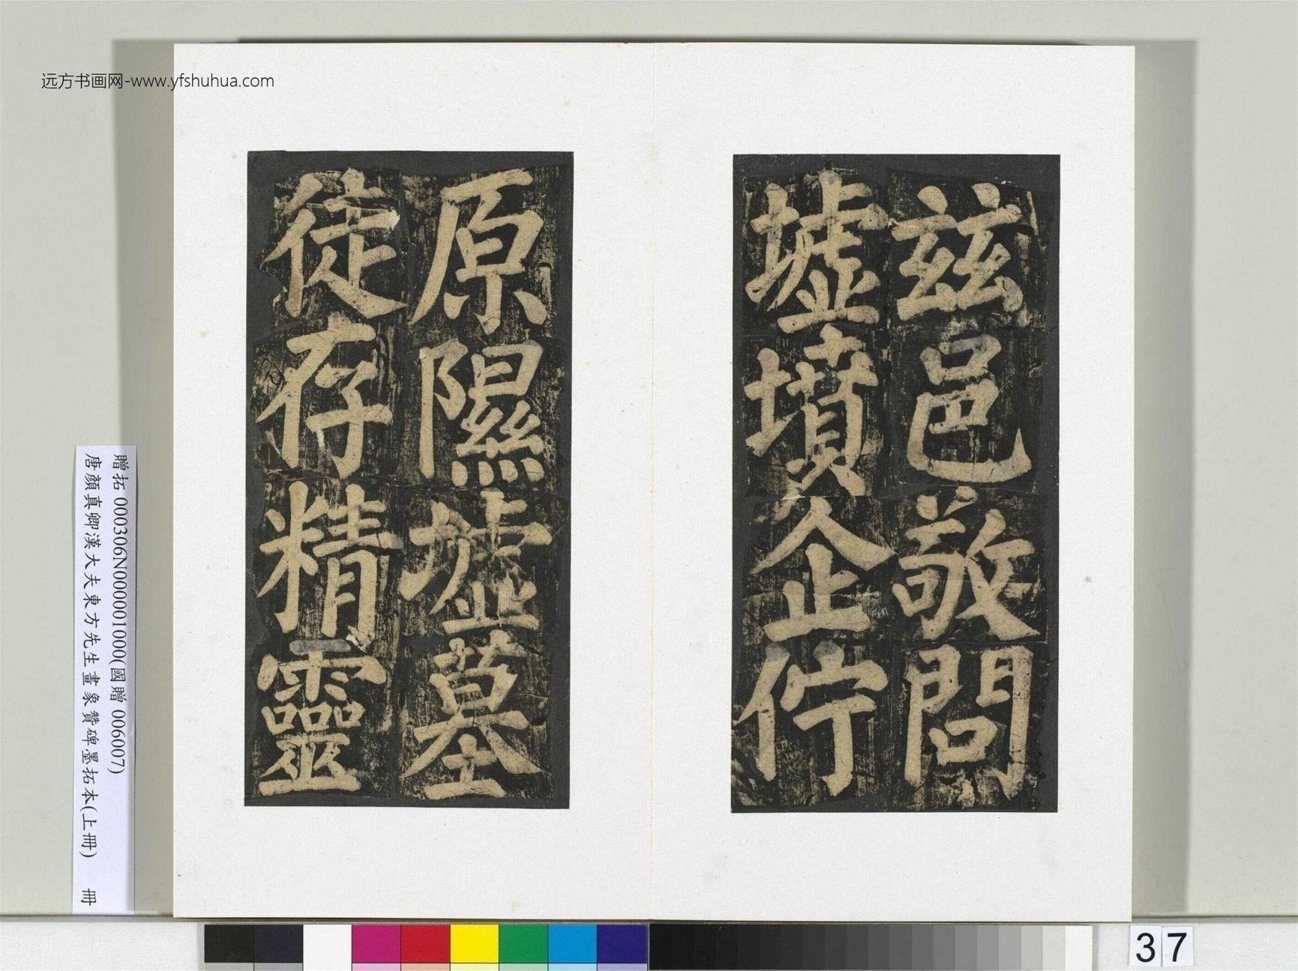 远方书画网-www.yfshuhua.com
茲邑敬問
墟墳企佇
原隰墟墓
徒存精靈
贈拓 000306N000001000(國贈 006007)
唐顏真卿漢大夫東方先生畫象贊碑墨拓本(上冊) 冊
37